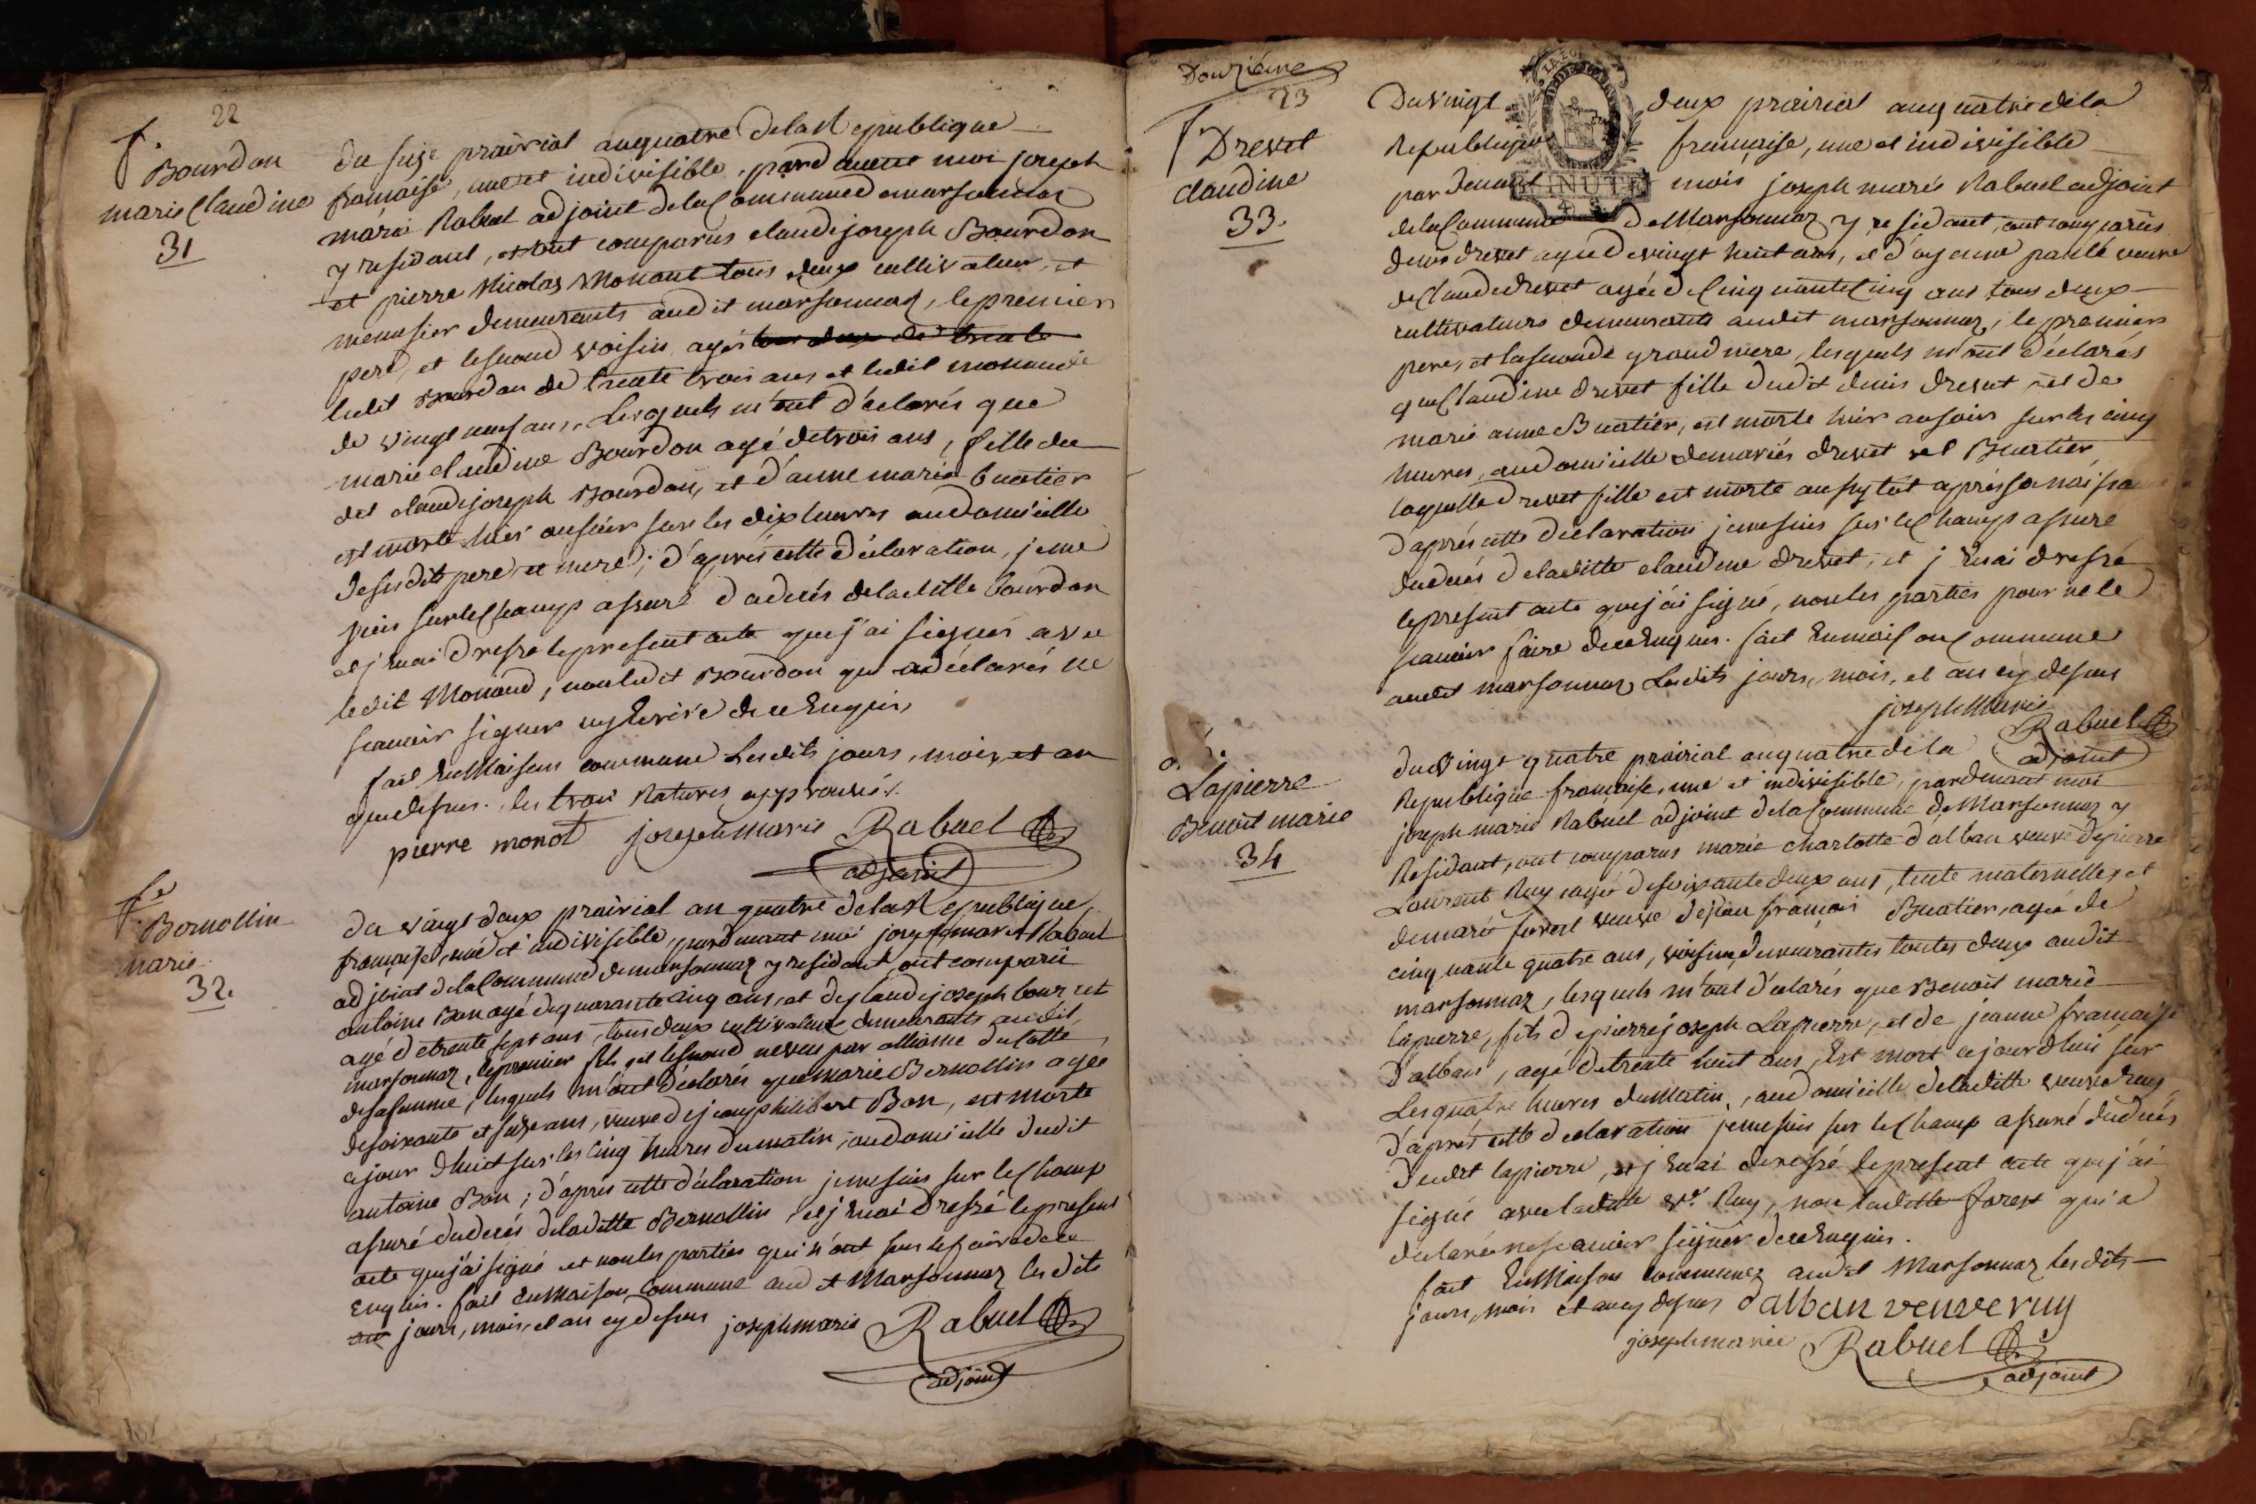 22
f.
Bourdon
marie Claudine
31
du seize prairial an quatre de la Republique
francaise, une et indivisible, pard avent moi joseph
marie Rabuel adjoint de la Commune de marsonnas
y residant, ont comparus claude joseph Bourdon
et pierre Nicolas Monant tous deux cultivateur, et
menusier demeurants audit marsonnaz, le premier
pere, et le second voisin, agés tous deux de trente
ledit Bourdon de trente trois ans et ledit monaud
de vingt neuf ans, Lesquels m'ont déclarés que
marie claudine Bourdon agé de trois ans, fille du
dit claude joseph Bourdon, et d'anne marie buatier
est morte hier ausoir sur les dix heures au domicille
desusdits pere et mere; d'après cette déclaration, je me
suis sur le Champ assuré du decés de ladille bourdon
et j'enai dressé le present acte que j'ai signés avec
ledit Monaud, nonledit Bourdon qui a déclarés ne
scavoir signer de ce Enquis,
fait En Maison commune Lesdits jours, mois, et an
que dessus. les trois Ratures approuvés.
pierre monot joseph marie Rabuel
adjoint
f.e
Bernollin
marie
32.
du vingt deux prairial an quatre de la Republique,
francaise, une et indivisible, pardevant moi joseph marie Rabuel
adjoint de la Commune de marsonnaz y residant, ont comparu
antoine Bon agé de quarante cinq ans, et de claude joseph bourcet
agé de trente sept ans, tous deux cultivateur demeurants audit
marsonnaz, le premier fils, et le second neveu par alliance du cotté
de sa femme, lesquels m'ont déclarés que marie Bernollin agee
de soixante et seize ans, veuve de j philibert Bon, est morte
ce jour dhuit sur les cinq heures du matin, au domicille dudit
antoine Bon; d'apres cette déclaration je me suis sur le Champ
assuré du decés de laditte Bernollin, et j'enai dressé le present
acte que j'ai signé et non les parties qui n'ont sus le faire de ce
Enquis. fait En Maison Commune aud et Marsonnaz les dits
jours, mois, et an cy dessus joseph marie Rabuel
adjoint
Douzième
23
f
Drevet
claudine
33.
Du vingt deux prairial an quatre de la
Republique francaise, une et indivisible
par devant MINUTE mois joseph marie Rabuel adjoint
de la Commune de Marsonnaz y residant, ont comparus
denis drevet agé de vingt huit ans, et d'ayenne veuve
de Claude drevet agée de Cinq uante Cinq ans tous deux
cultivateurs demeurants audit marsonnaz, le premier
pere, et la seconde grand mere, lesquels m'ont déclarés
que Claudine drevet fille dudit denis drevet, et de
marie anne Buatier, est morte hier ausoir sur les cinq
heures, au domicille de mariés drevet et Buatier,
laquelle drevet fille est morte aussytôt après sa naissa
d'après cette declaration je me suis sur le Champ assuré
du decés de ladditte claudine drevet, et j'Enai dressé
le present acte que j'ai signé, non les parties pour ne le
scavoir faire de ce Enquis. fait En maison Commune
audit marsonnaz Lesdits jours, mois, et an cy dessus
joseph Marie
Rabuel
adjoint
Lapierre
Benoit marie
34
du vingt quatre prairial an quatre de la
Republique francaise, une et indivisible, pardevant moi
joseph marie Rabuel adjoint de la Commune de Marsonnaz y
Residant, ont comparus marie charlotte d'alban veuve de pierre
Laurent Ruy agée de soixante deux ans, tente maternelle, et
de marie forest veuve de jean francois Buatier, agée de
cinq uante quatre ans, voisine, demeurantes toutes deux audit
marsonnaz, lesquels m'ont déclarés que Benoit marie
lapierre, fils de pierre joseph Lapierre, et de jeanne francoise
d'alban, agé de trente huit ans, Est mort ce jourdhui sur
Les quatre heures du Matin, au domicille de laditte veuve Ruy,
d'après cette declaration je me suis sur le Champ assuré du decés
dudit lapierre, et j'Enai dressé le present acte que j'ai
signé avec laditte v.e Ruy, non laditte forest qui a
declarée ne scavoir signer de ce Enquis.
fait En Maison commune audit Marsonnaz les dits
jours, mois et an cy dessus d'alban veuve ruy
joseph marie Rabuel
adjoint